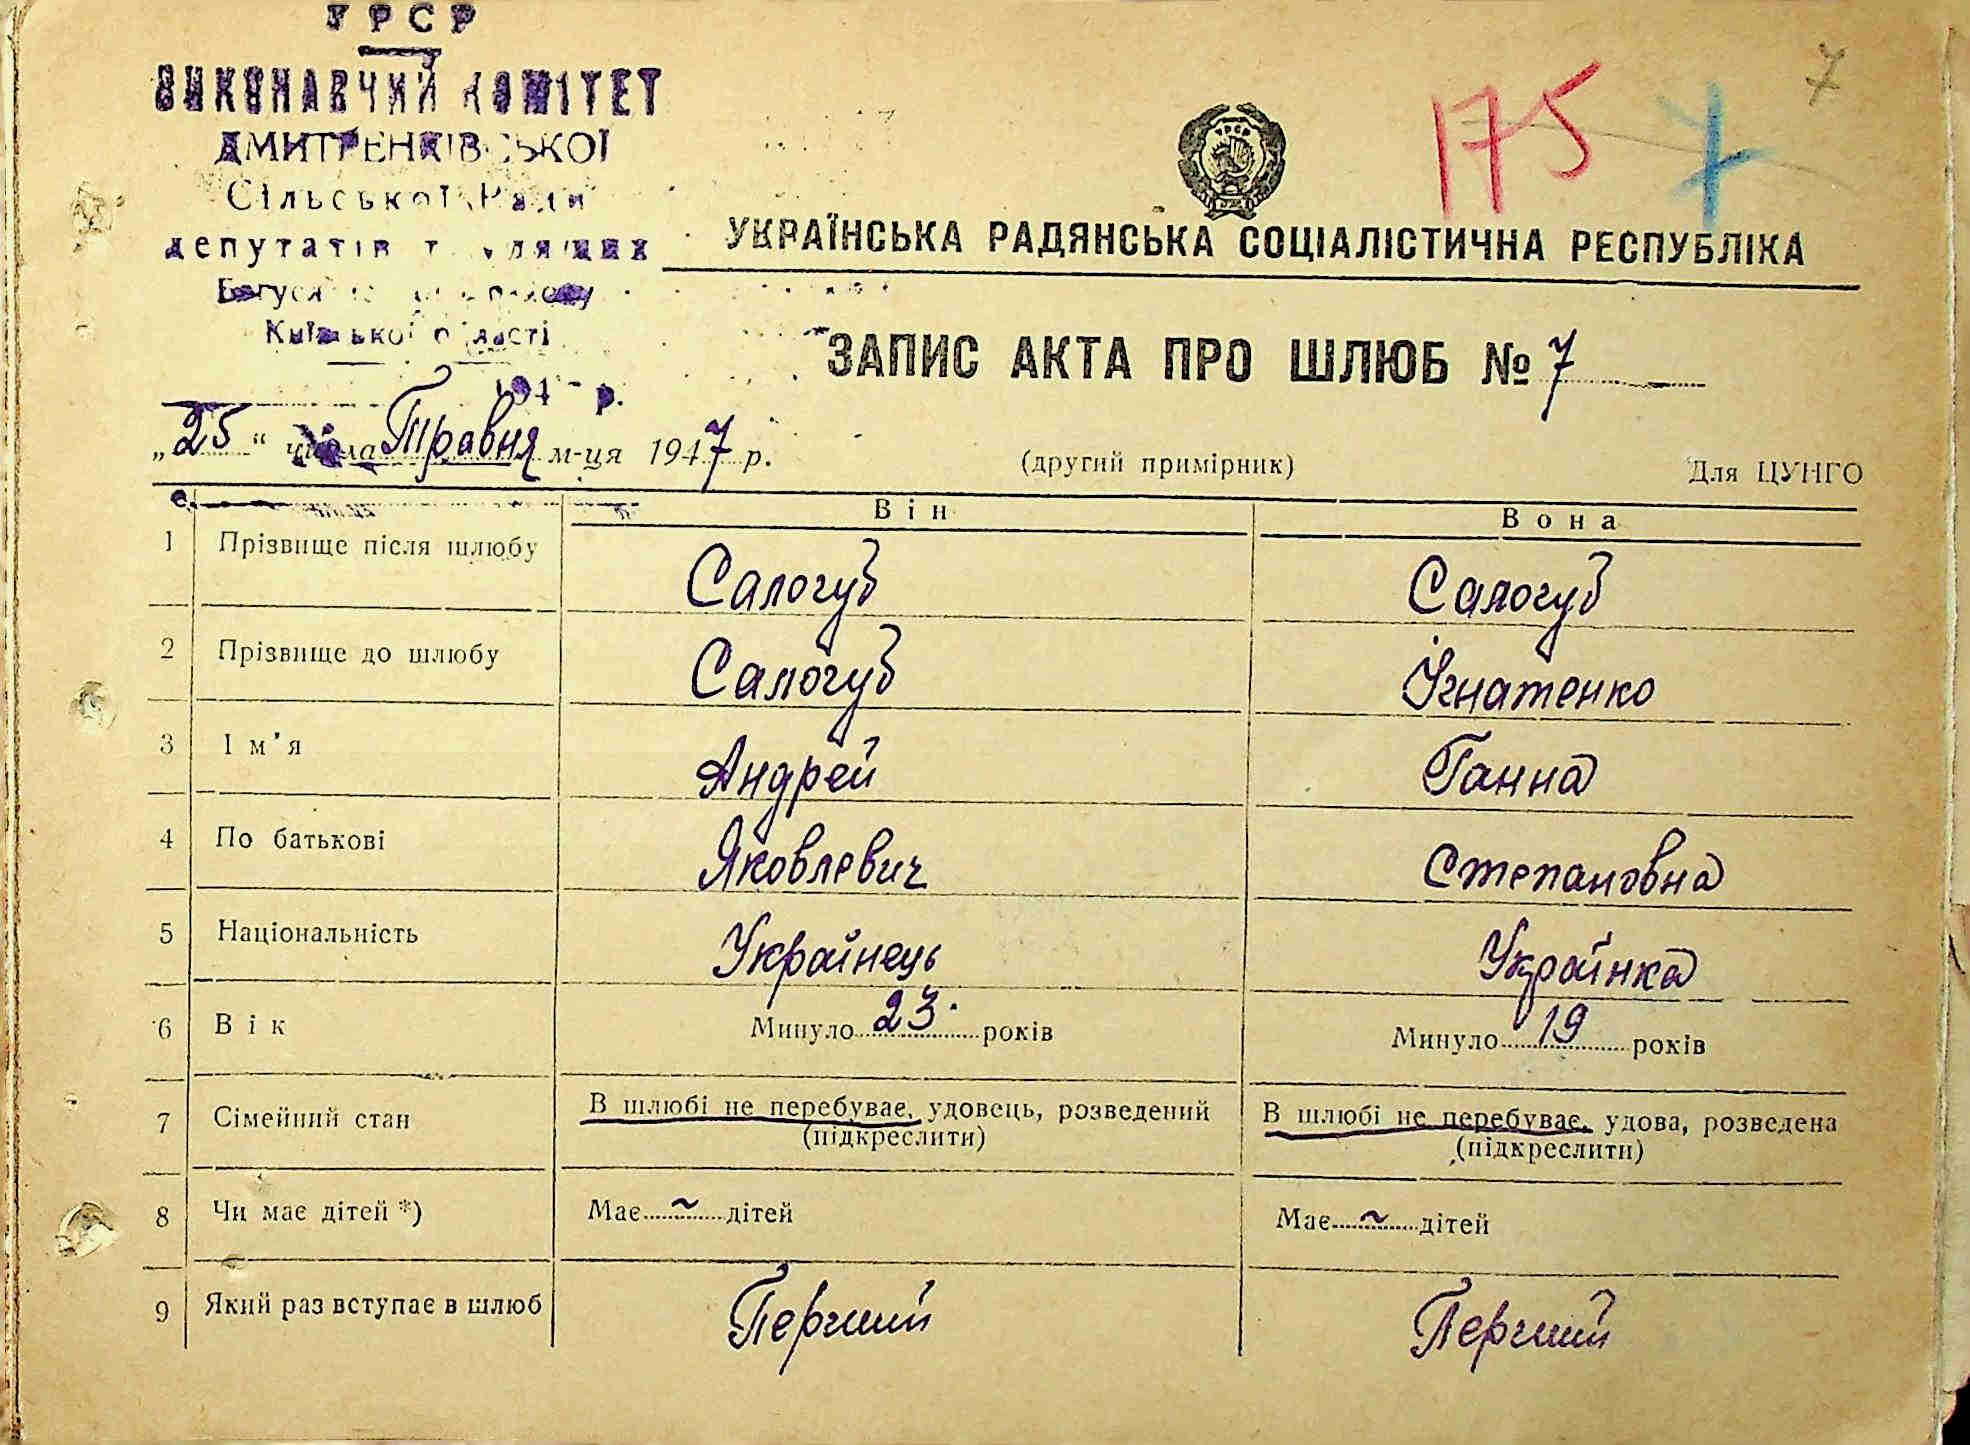 УРСР
ВИКОНАВЧИЙ КОМІТЕТ
ДМИТРЕНКІВСЬКОЇ
Сільської Ради
депутатів трудящих
Київської області
194 р.
175 7
7
УРСР
УКРАЇНСЬКА РАДЯНСЬКА СОЦІАЛІСТИЧНА РЕСПУБЛІКА
ЗАПИС АКТА ПРО ШЛЮБ № 7
„25“ числа Травня м-ця 1947 р.
(другий примірник)
Для ЦУНГО
Він
Вона
1 Прізвище після шлюбу Салогуб Салогуб
2 Прізвище до шлюбу Салогуб Ігнатенко
3 Ім'я Андрей Ганна
4 По батькові Яковлевич Степановна
5 Національність Українець Українка
6 Вік Минуло 23 років Минуло 19 років
7 Сімейний стан В шлюбі не перебуває, удовець, розведений В шлюбі не перебуває, удова, розведена
(підкреслити) (підкреслити)
8 Чи має дітей *) Має ~ дітей Має ~ дітей
9 Який раз вступає в шлюб Перший Перший